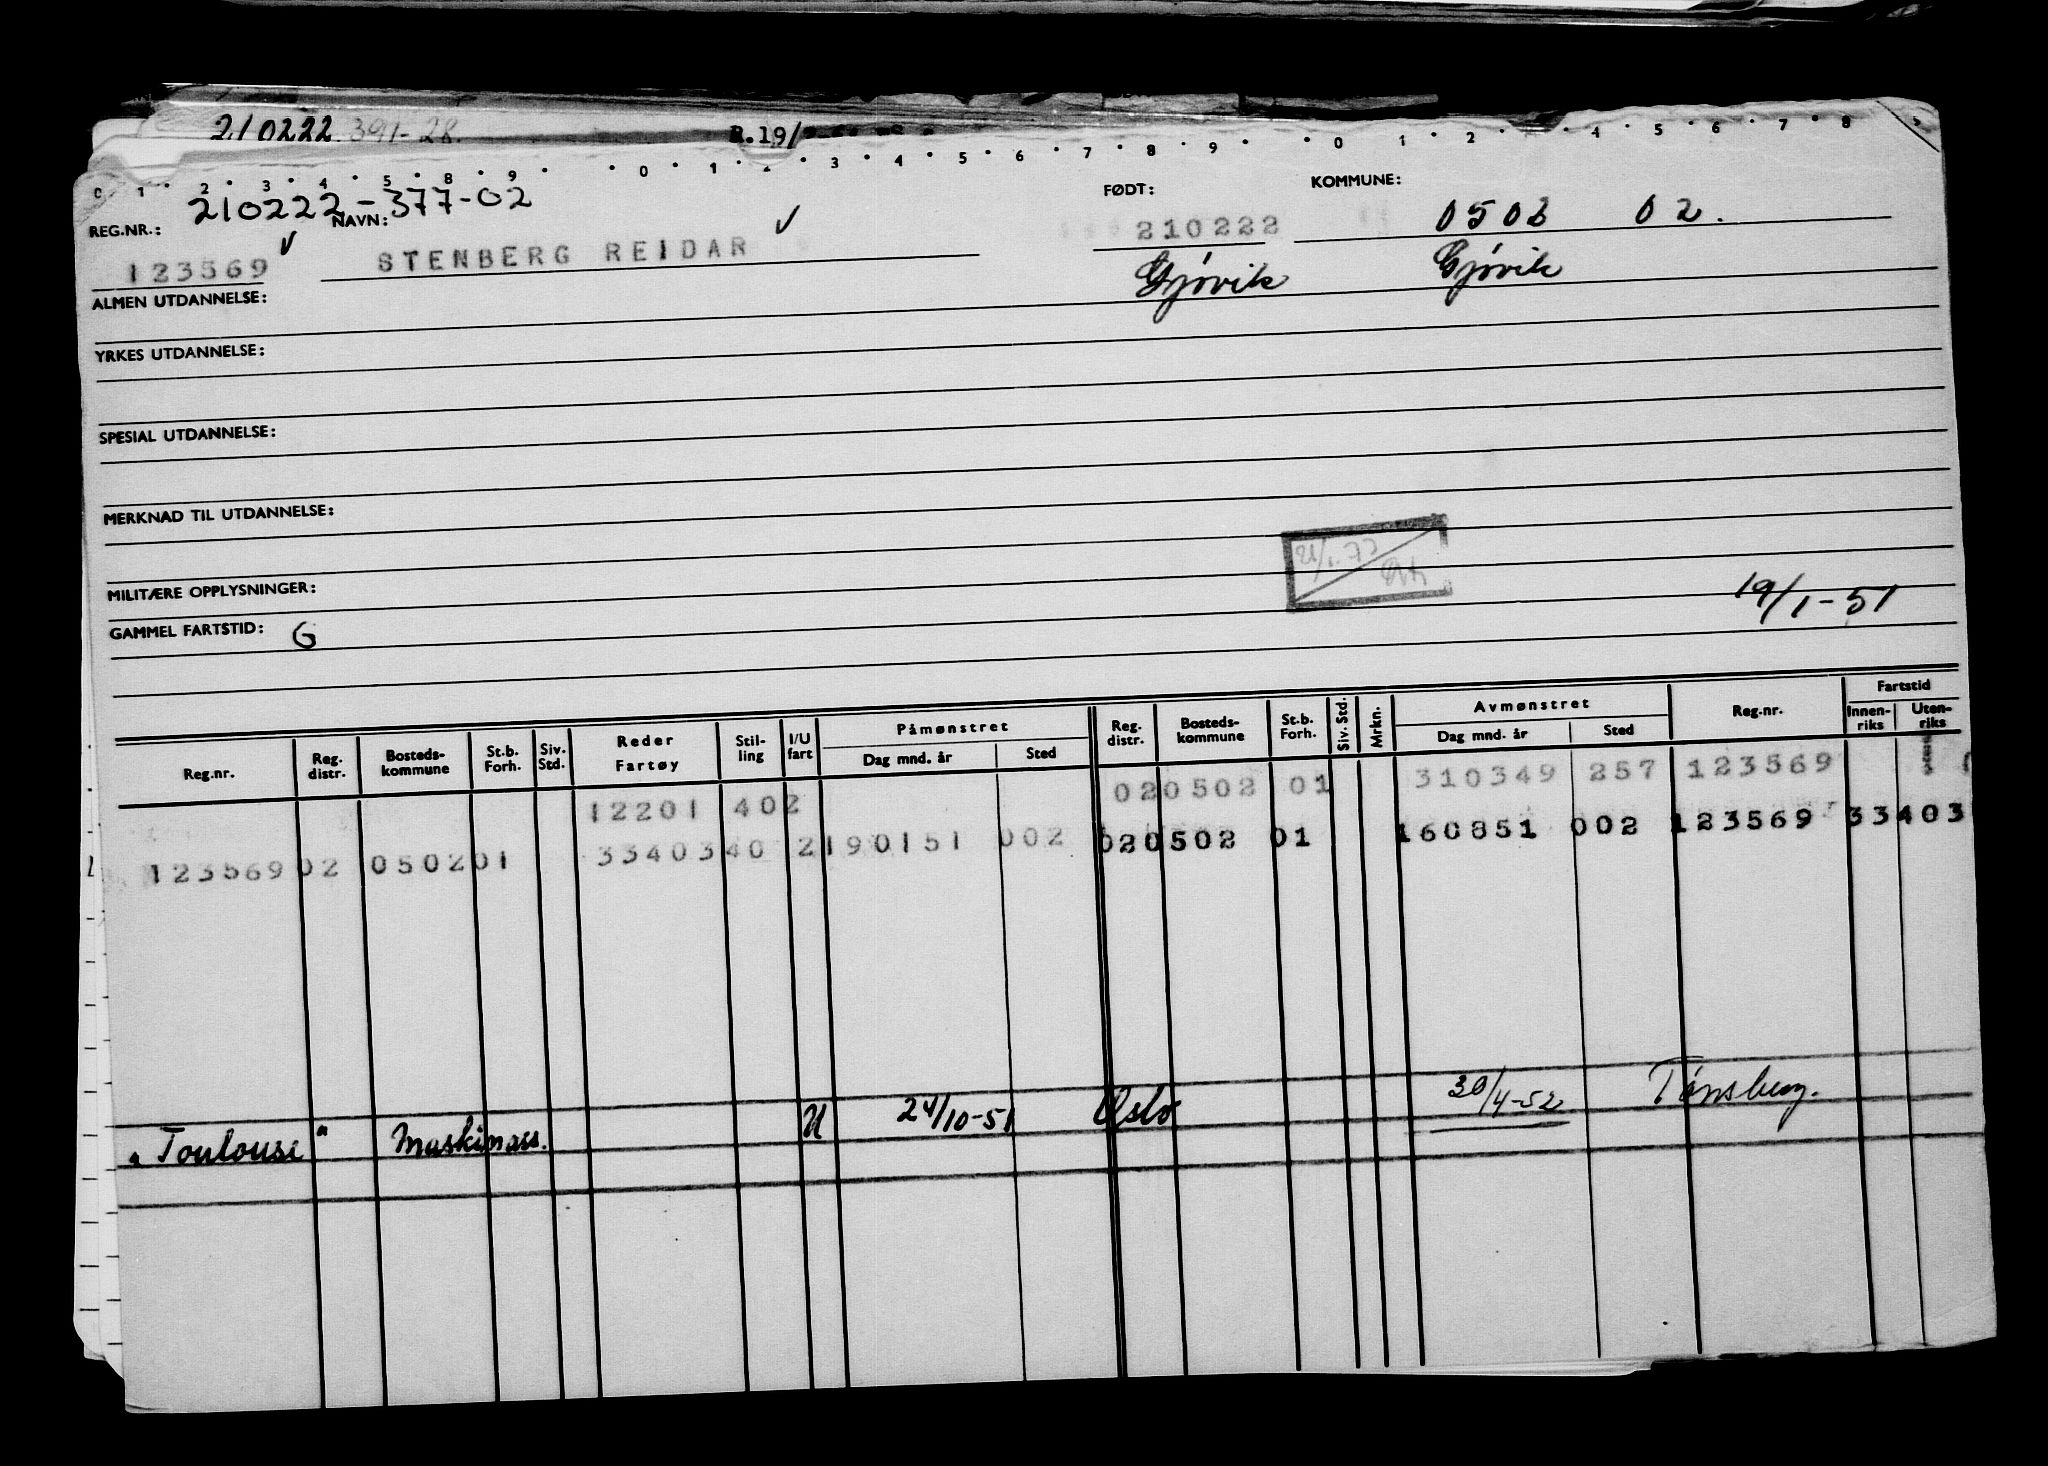 210222.391-28.
0 1 2 3 4 5 8 9 0 1 2 3 4 5 6 7 8 9 0 1 2 3 4 5 6 7 8 9
REG.NR.: 210222-377-02 NAVN: FØDT: KOMMUNE:
123569 STENBERG REIDAR 210222 0502 02.
Gjøvik Gjøvik
ALMEN UTDANNELSE:
YRKES UTDANNELSE:
SPESIAL UTDANNELSE:
MERKNAD TIL UTDANNELSE:
MILITÆRE OPPLYSNINGER:
19/1-51
GAMMEL FARTSTID: G
Reg.nr. Reg. distr. Bosteds-kommune St.b. Forh. Siv. Std. Reder Fartøy Stil-ling I/U fart Påmønstret Dag mnd. år Sted Reg. distr. Bosteds-kommune St.b. Forh. Siv. Std. Mrkn. Avmønstret Dag mnd. år Sted Reg.nr. Fartstid Innen-riks Uten-riks
12201 402 020502 01 310349 257 123569
123569 02 0502 01 33403 40 2 190151 002 020502 01 160851 002 123569 33403
"Toulouse" Maskinass. U 24/10-51 Oslo 30/4-52 Tønsberg.